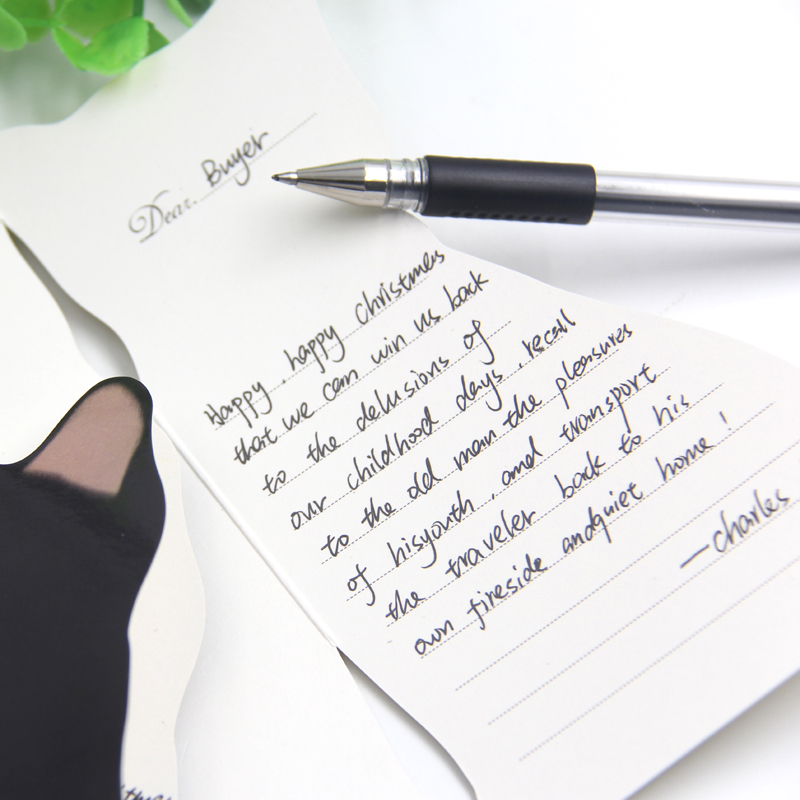 Dear. Buyer
Happy, happy christmas
that we can win us back
to the delusions of
our childhood days, recall
to the old man the pleasures
of hisyouth, and transport
the traveler back to his
own fireside andquiet home!
—charles